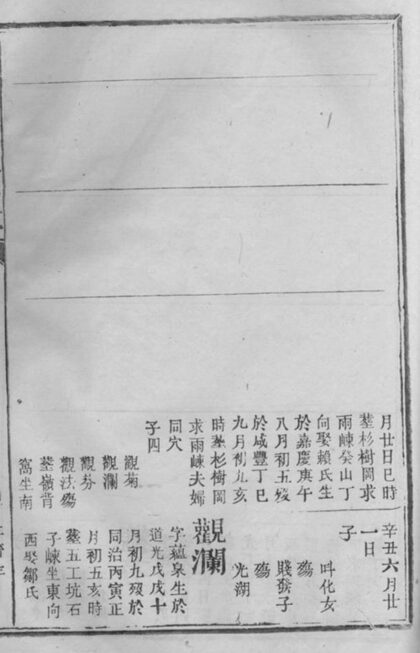 月廿日巳時
塟杉樹岡求
雨崠癸山丁
向娶賴氏生
於嘉慶庚午
八月初五歿
於咸豐丁巳
九月初九亥
時塟杉樹岡
求雨崠夫婦
同穴
子四
觀菊
觀瀾
觀芬
觀汰殤
塟嶺背
窩坐南
辛丑六月廿
一日
子
呌化女
殤
賤發子
殤
光湖
觀瀾
字蘊泉生於
道光戊戌十
月初九歿於
同治丙寅正
月初五亥時
塟五工坑石
子崠坐東向
西娶鄒氏